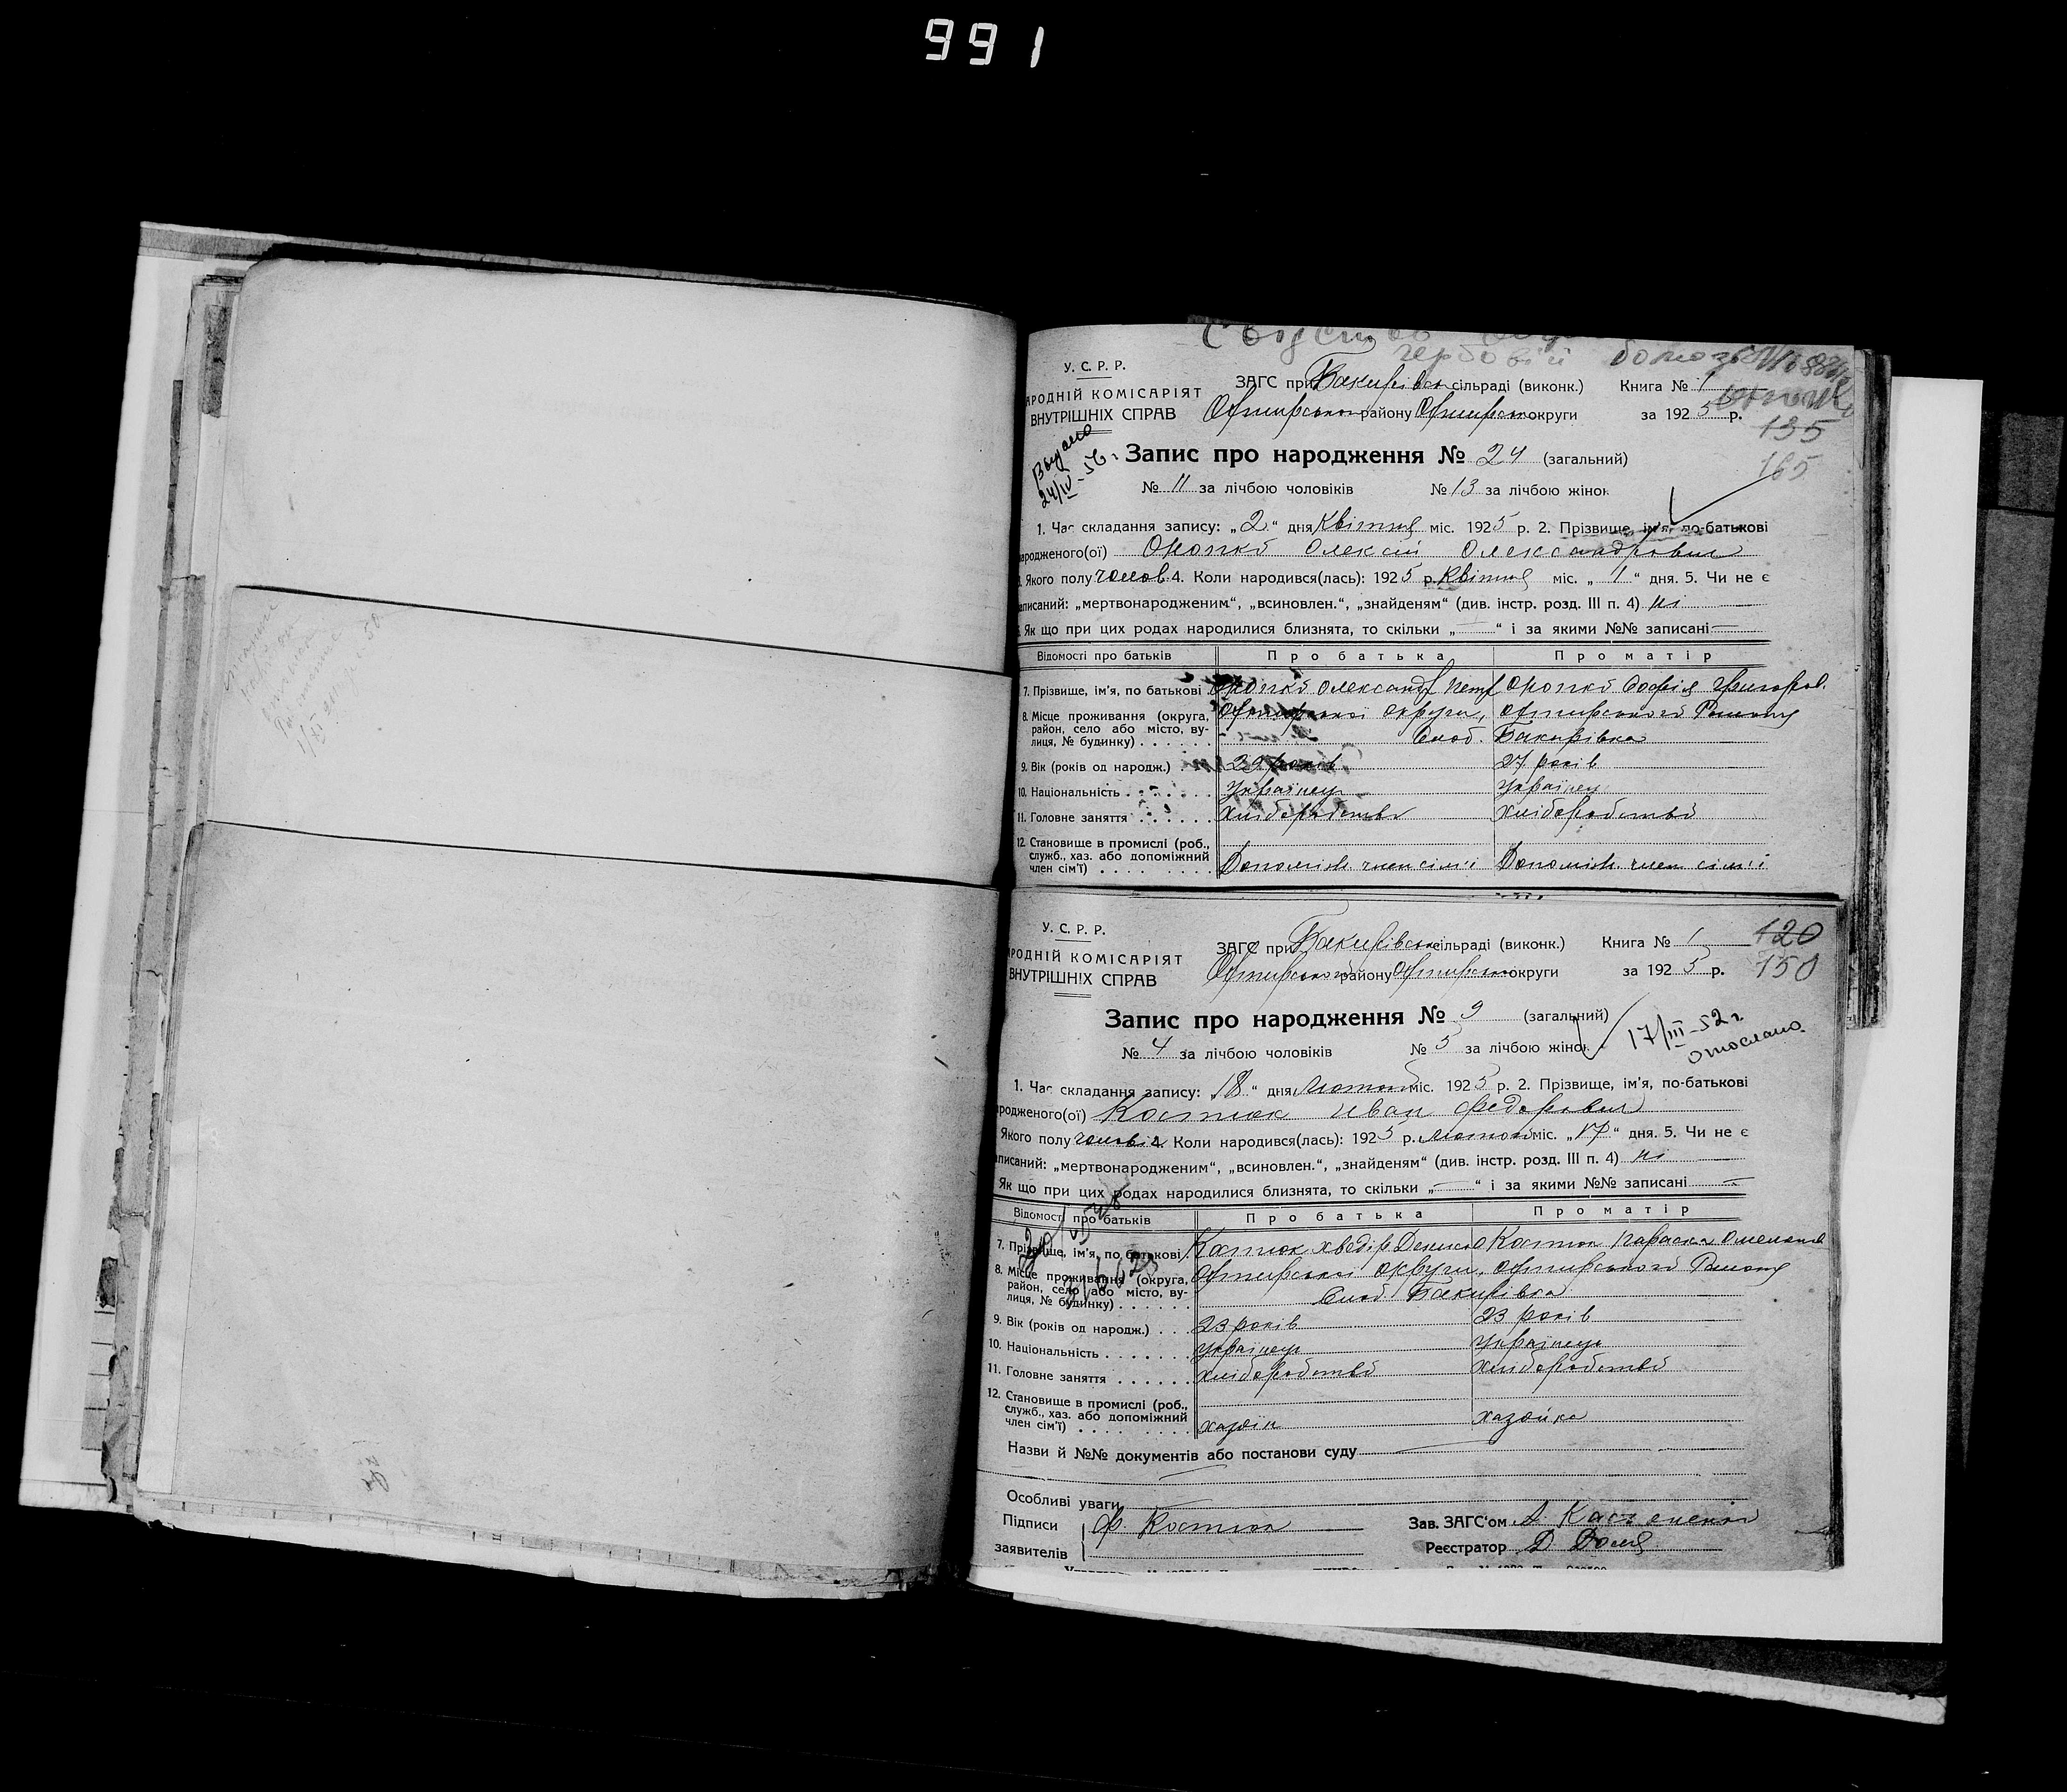 991
У. С. Р. Р.
РОДНІЙ КОМІСАРІЯТ
ВНУТРІШНІХ СПРАВ
ЗАГС при Бакирівськ сільраді (виконк.) Книга № 1
Охтирського району Охтирсько округи за 1925 р.
135
165
Видано
24/IV-56 г.
Запис про народження № 24 (загальний)
№ 11 за лічбою чоловіків № 13 за лічбою жінок
1. Час складання запису: „2“ дня Квітня міс. 1925 р. 2. Прізвище, ім'я, по-батькові
народженого(ої) Олексій Олександрович
Якого полу чолов. 4. Коли народився(лась): 1925 р. Квітня міс. „1“ дня. 5. Чи не є
записаний: „мертвонародженим“, „всиновлен.“, „знайденям“ (див. інстр. розд. III п. 4) ні
Як що при цих родах народилися близнята, то скільки „—“ і за якими №№ записані —
Відомості про батьків Про батька Про матір
7. Прізвище, ім'я, по батькові Олександр Петр Софія Григоров.
8. Місце проживання (округа, район, село або місто, вулиця, № будинку) Охтирської округи, Охтирського Району
Слоб. Бакирівка
9. Вік (років од народж.) 29 років 27 років
10. Національність Українец Українец
11. Головне заняття Хліборобство Хліборобство
12. Становище в промислі (роб., служб., хаз. або допоміжний член сім'ї) Допоміж. член сім'ї Допоміж. член сім'ї
У. С. Р. Р.
РОДНІЙ КОМІСАРІЯТ
ВНУТРІШНІХ СПРАВ
ЗАГС при Бакирівськ сільраді (виконк.) Книга № 1
Охтирського району Охтирсько округи за 1925 р.
120
150
Запис про народження № 9 (загальний)
№ 4 за лічбою чоловіків № 5 за лічбою жінок
17/III-52 г.
отослано.
1. Час складання запису: „18“ дня Лютого міс. 1925 р. 2. Прізвище, ім'я, по-батькові
народженого(ої) Костюк Иван Федорович
Якого полу чоловіч. 4. Коли народився(лась): 1925 р. Лютого міс. „17“ дня. 5. Чи не є
записаний: „мертвонародженим“, „всиновлен.“, „знайденям“ (див. інстр. розд. III п. 4) ні
Як що при цих родах народилися близнята, то скільки „—“ і за якими №№ записані —
Відомості про батьків Про батька Про матір
7. Прізвище, ім'я, по батькові Костюк Хведір Денисо Костюк Параска Омелянов
8. Місце проживання (округа, район, село або місто, вулиця, № будинку) Охтирської округи, Охтирського Району
Слоб Бакирівка
9. Вік (років од народж.) 23 років 23 років
10. Національність Українец Українец
11. Головне заняття Хліборобство Хліборобство
12. Становище в промислі (роб., служб., хаз. або допоміжний член сім'ї) хазяїн хазяйка
Назви й №№ документів або постанови суду
Особливі уваги
Підписи заявителів Ф. Костюк
Зав. ЗАГС'ом
Реєстратор Д.